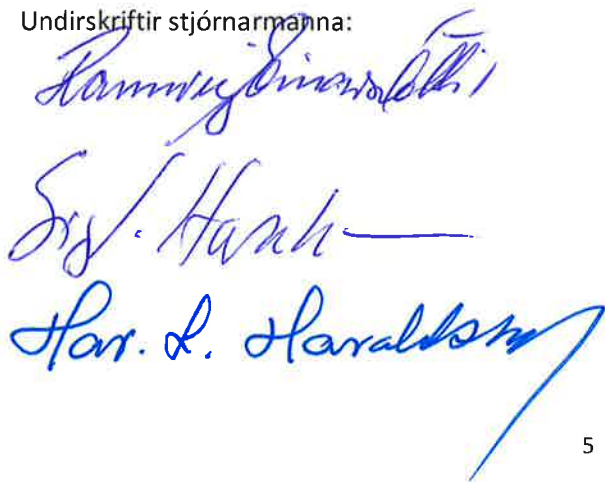 Undirskriftir stjórnarmanna:
Rannveig Einarsdóttir
Har. L. Haraldsson
5